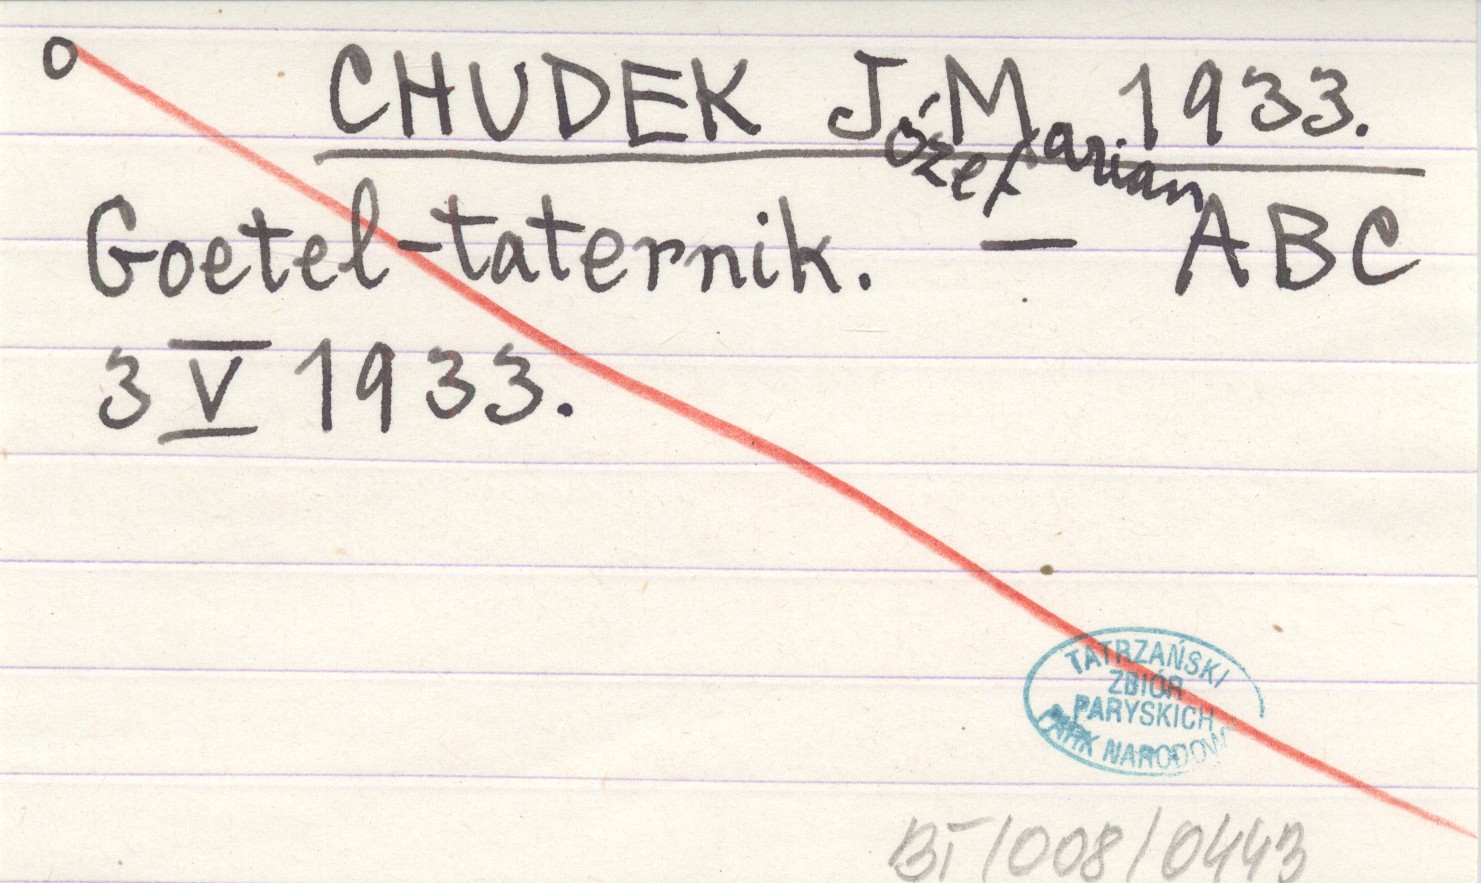 o CHUDEK Józef Marian 1933.
Goetel-taternik. — ABC
3 V 1933.
TATRZAŃSKI
ZBIÓR
PARYSKICH
PARK NARODOW
BT/008/0443